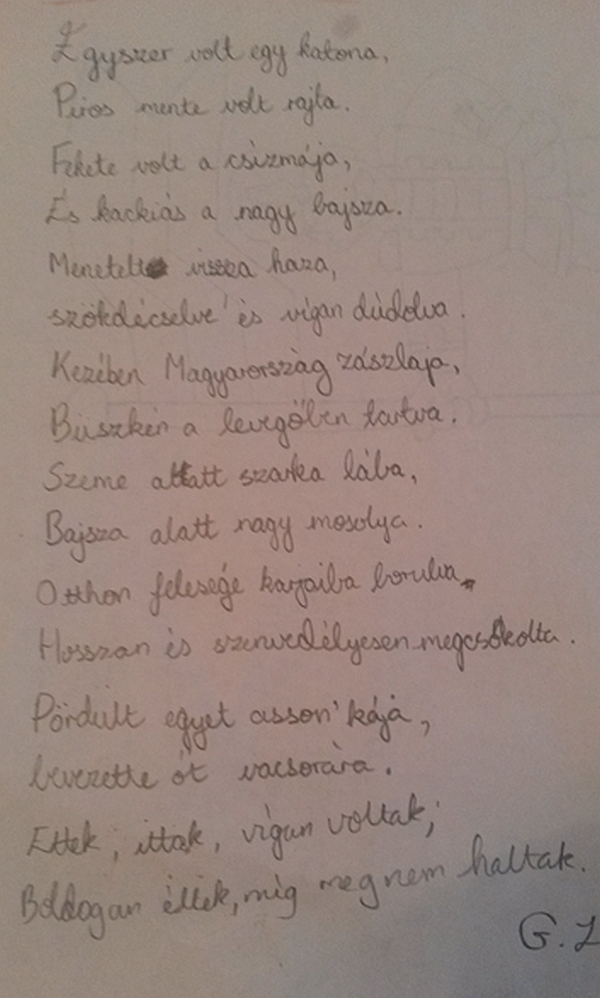 Egyszer volt egy katona,
Piros mente volt rajta.
Fekete volt a csizmája,
És kackiás a nagy bajsza.
Menetelt vissza haza,
szökdécselve és vígan dúdolva.
Kezében Magyarország zászlaja,
Büszkén a levegőben tartva.
Szeme alatt szarka lába,
Bajsza alatt nagy mosolya.
Otthon felesége karjaiba borulva
Hosszan és szenvedélyesen megcsókolta.
Pördült egyet asszon'kája,
bevezette őt vacsorára.
Ettek, ittak, vígan voltak;
Boldogan éltek, míg meg nem haltak.
G. Z